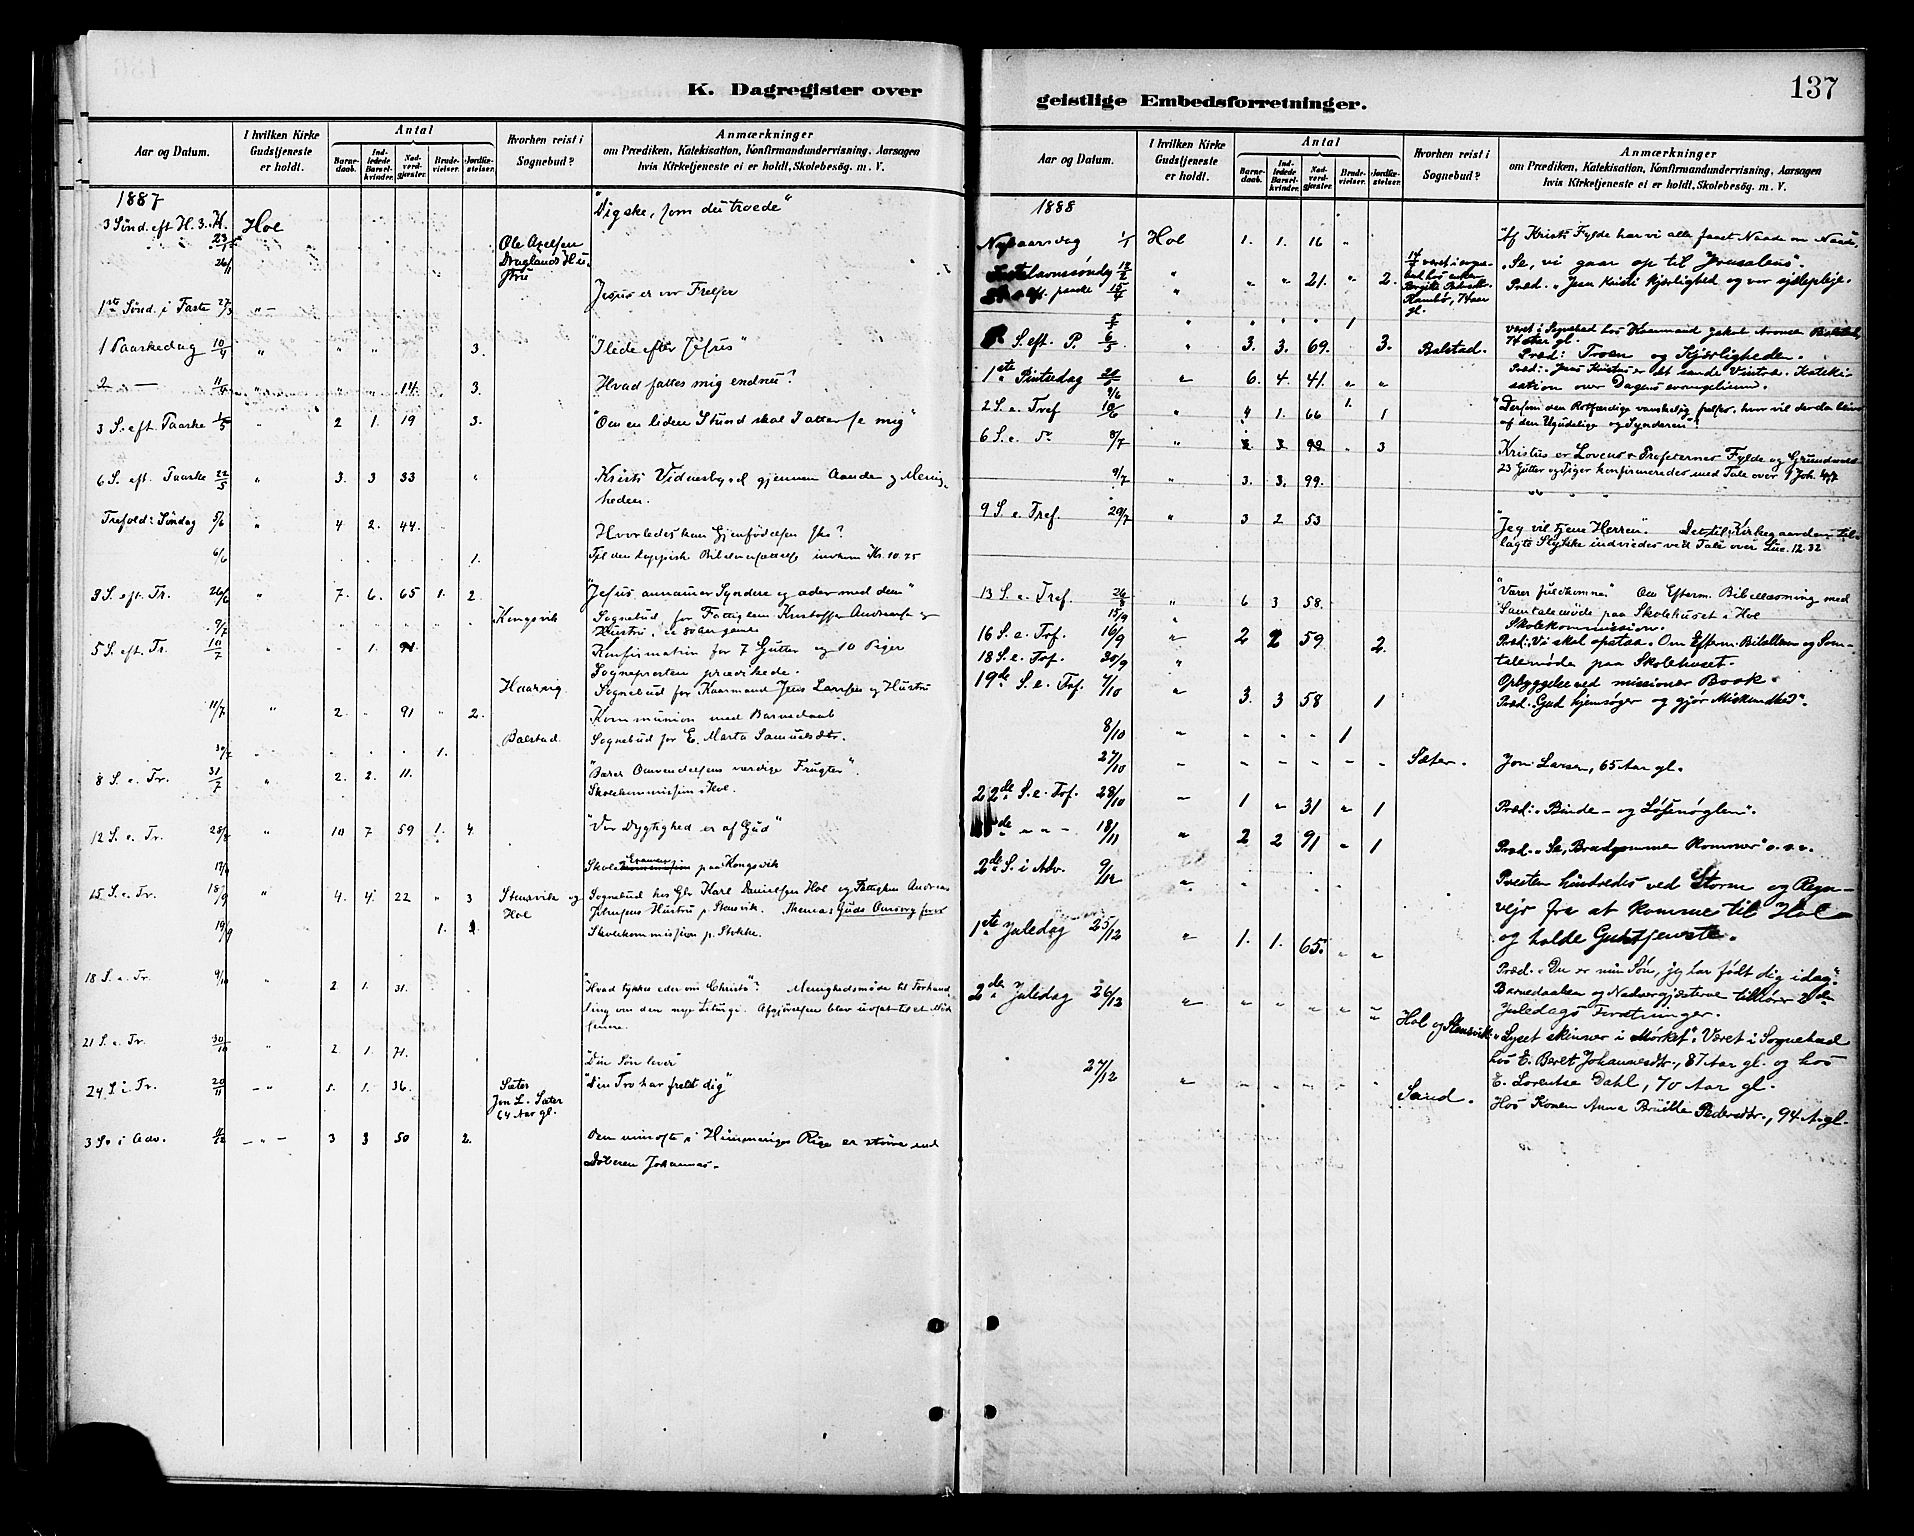 K. Dagregister over
Aar og Datum.
I hvilken Kirke Gudstjeneste er holdt.
Antal
Barnedaab.
Indledede Barselkvinder.
Nadverdgjæster.
Brudevielser.
Jordfæstelser.
Hvorhen reist i Sognebud?
Anmærkninger
om Prædiken, Katekisation, Konfirmandundervisning, Aarsagen
hvis Kirketjeneste ei er holdt, Skolebesøg. m. V.
1887
3 Sønd. eft H. 3. K. 23/1 Hol "Dig ske, som du troede"
26/1 Ole Axelsen
Draglands Hu-
stru
1ste Sønd. i Faste 27/3 " - Jesus er vor Frelser
1 Paaskedag 10/4 " " " 3. "I lede efter Jesus"
2 - " - 11/4 " " " 14. 3. Hvad fattes mig endnu?
3 S. eft. Paaske 1/5 " 2 1. 19 3. "Om en liden Stund skal I atter se mig"
6 S. eft. Paaske 22/5 " 3. 3 33 " Kristi Vidnesbyrd gjennem Aanden og Menig-
heden.
Trefold: Søndag 5/6 " 4 2. 44. Hvorledes kan Gjenfødelsen ske?
6/6 1.
3 S. eft. Tr. 26/6 " 7. 6. 65 1. 2. "Jesus annamer Syndere og æder med dem"
9/7 Kongsvik Sognebud for Fattiglem Kristoffer Andreas og
Hustru
5 S. eft. Tr. 10/7 " - 1. 91 Konfirmation for 7 Gutter og 10 Piger
Sognepresten prædikede.
Haarvig Sognebud for Kaarmand Jens Larsen og Hustru
11/7 " 2. 91 " 2. Kommunion med Barnedaab
Balstad Sognebud for E. Marta Samuelsdtr.
30/7 " 1.
8 S. e. Tr. 31/7 " 2. 2. 11. "Bærer Omvendelsens værdige Frugter".
Skolekommission i Hol.
12 S. e. Tr. 28/8 " 10 7 59 1. 4. "Vor Dygtighed er af Gud"
17/9 Skole Examen paa Kongsvik
15 S. e Tr. 18/9 " 4. 4. 22 " 3 Stensvik og Sognebud hos Gbr Karl Danielsen Hol og Fattiglem Andreas
Hol Hustru p. Stensvik. Themas: Guds Omsorg for os
19/9 1. Skolekommission p. Stokke.
18 S. e. Tr. 9/10 " 2 1. 31. "Hvad tykkes eder om Christo"? Menighedsmøde til Forhand-
ling om den nye Liturgi. Afgjørelsen blev udsat til et Møde
senere.
21 S. e. Tr. 30/10 " 2 1. 71. "Din Søn lever"
24 S. e. Tr. 20/11 - " - 5. 1. 36 Sæter "Din Tro har frelst dig"
Jon L. Sæter
64 Aar gl.
3 S. i Adv. 11/12 - " - 3 3 50 2. Den mindste i Himmeriges Rige er større end
Døberen Johannes.
137
geistlige Embedsforretninger.
Aar og Datum.
I hvilken Kirke Gudstjeneste er holdt.
Antal
Barnedaab.
Indledede Barselkvinder.
Nadverdgjæster.
Brudevielser.
Jordfæstelser.
Hvorhen reist i Sognebud?
Anmærkninger
om Prædiken, Katekisation, Konfirmandundervisning, Aarsagen
hvis Kirketjeneste ei er holdt, Skolebesøg. m. V.
1888
Nytaarsdag 1/1 Hol 1. 1. 16 " "Af Kristi Fylde har vi alle faaet Naade om Naade.
Fastelavnssøndg 12/2 " " " 21. " 2. "Se, vi gaar op til Jerusalem".
eft. paaske 15/4 " Præd. "Jesu Kristi Kjærlighed og vor sjælepleje.
5/5 " " " " 1
S. eft. P. 6/5 " 3. 3. 69. 3. Balstad. været i Sognebud hos Kaarmand Jakob
74 Aar gl.
Præd: Troen og Kjærligheden.
1ste Pintsedag 20/5 " 6. 4. 41. " " Præd: Jesus Kristus er det sande Vintræ. Kateki-
sation over Dagens evangelium.
9/6 1.
2 S. e. Tref 10/6 " 4 1. 66 1 "Dersom den Retfærdige vanskelig frelses, hvor vil da da blive
af den Ugudelige og Synderen"?
6 S. e. do 8/7 " 2 3 92 " 3 Kristus er Lovens & Profeternes Fylde og
9/7 " 3. 3. 99. 23 Gutter og Piger konfirmeredes med Tale over
9 S. e. Tref 29/7 " 3 2 53 "Jeg vil tjene Herren". Det til Kirkegaarden til-
lagte Stykke indviedes ved Tale over Luc. 12.32
13 S. e. Tref. 26/8 " 6 3 58. "Værer fuldkomne" Om Efterm. Bibellæsning med
Samtalemøde paa Skolehuset i Hol
15/9 " Skolekommission.
16 S. e. Tref. 16/9 " 2 2 59 2. Præd: Vi skal opstaa. Om Efterm. Bibellæsn og Sam-
talemøde paa Skolehuset.
18 S. e. Tref. 30/9 " Opbyggelse ved missionær Bock.
19de S. e. Tref. 7/10 " 3. 3 58 1 Præd. "Gud hjemsøger og gjør Miskundhed".
8/10 " - - - 1
27/10 - - - - - - Sæter. Jon Larsen, 65 Aar gl.
22de S. e. Tref. 28/10 " 1 " 31 " 1 Præd: "Binde- og Løsenøglen".
de " " - 18/11 " 2 2 91 " 1 Præd. "Se, Brudgommen kommer" o.s.v.
2de S. i Adv. 9/12 " Presten hindredes ved Storm og Regn-
vejr fra at komme til Hol
og holde Gudstjeneste.
1ste Juledag 25/12 " 1. 1. 65. " " Præd. "Du er min Søn, jeg har født dig idag".
Barnedaaben og Nadvergjæsterne tilhører 2den
Juledags Forretninger.
2den Juledag 26/12 " " " " " " Hol og Stensvik. "Lyset skinner i Mørket". Været i Sognebud
hos E. Beret Johannesdtr., 87 Aar gl. og hos
E. Lorentse Dahl, 70 Aar gl.
27/12 " - - - - - Sand. Hos Konen Anna Brithe Pedersdtr., 94 A. gl.